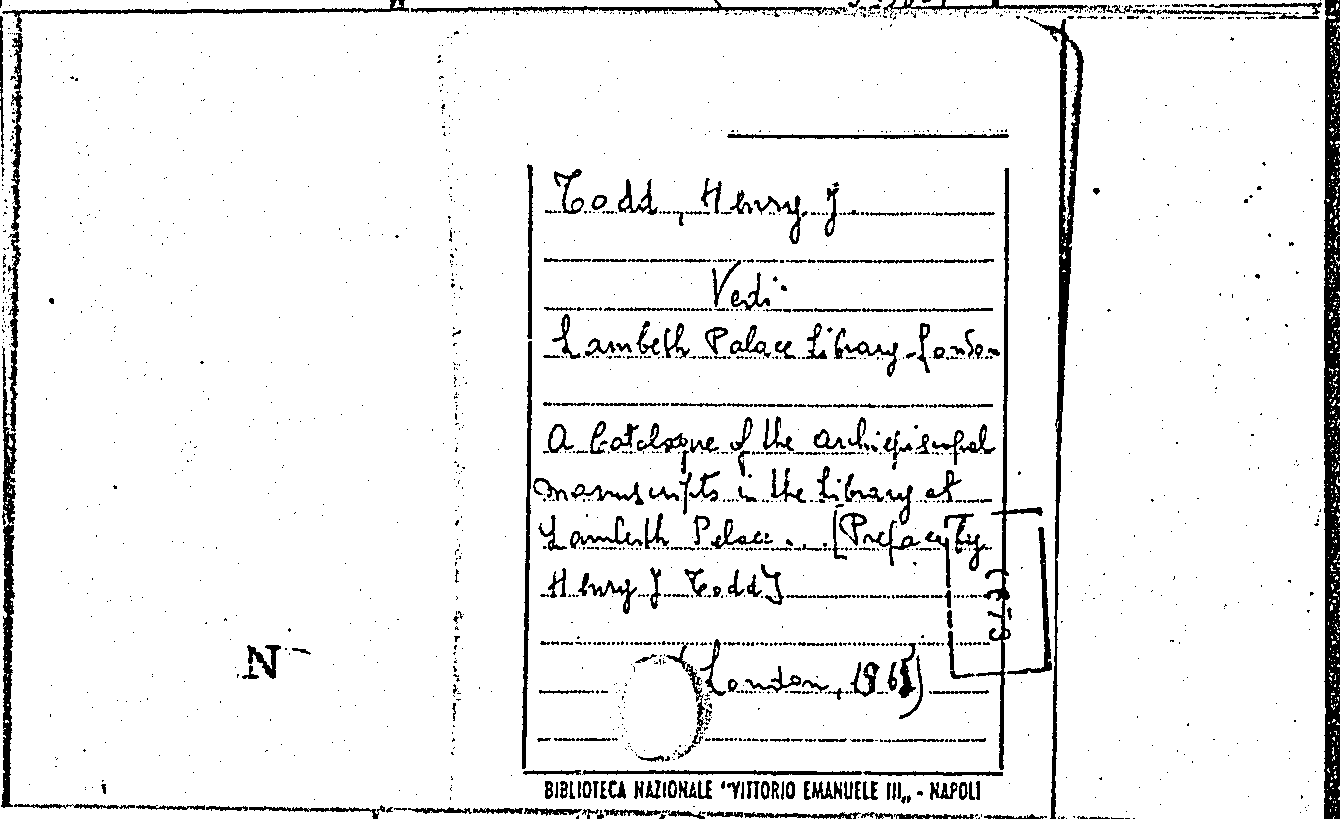 Todd, Henry J.
Vedi:
Lambeth Palace Library - London
A Catalogue of the archiepiscopal
manuscripts in the Library at
Lambeth Palace ... [Preface by
Henry J Todd]
(London, 1965)
N
BIBLIOTECA NAZIONALE "VITTORIO EMANUELE III„ - NAPOLI